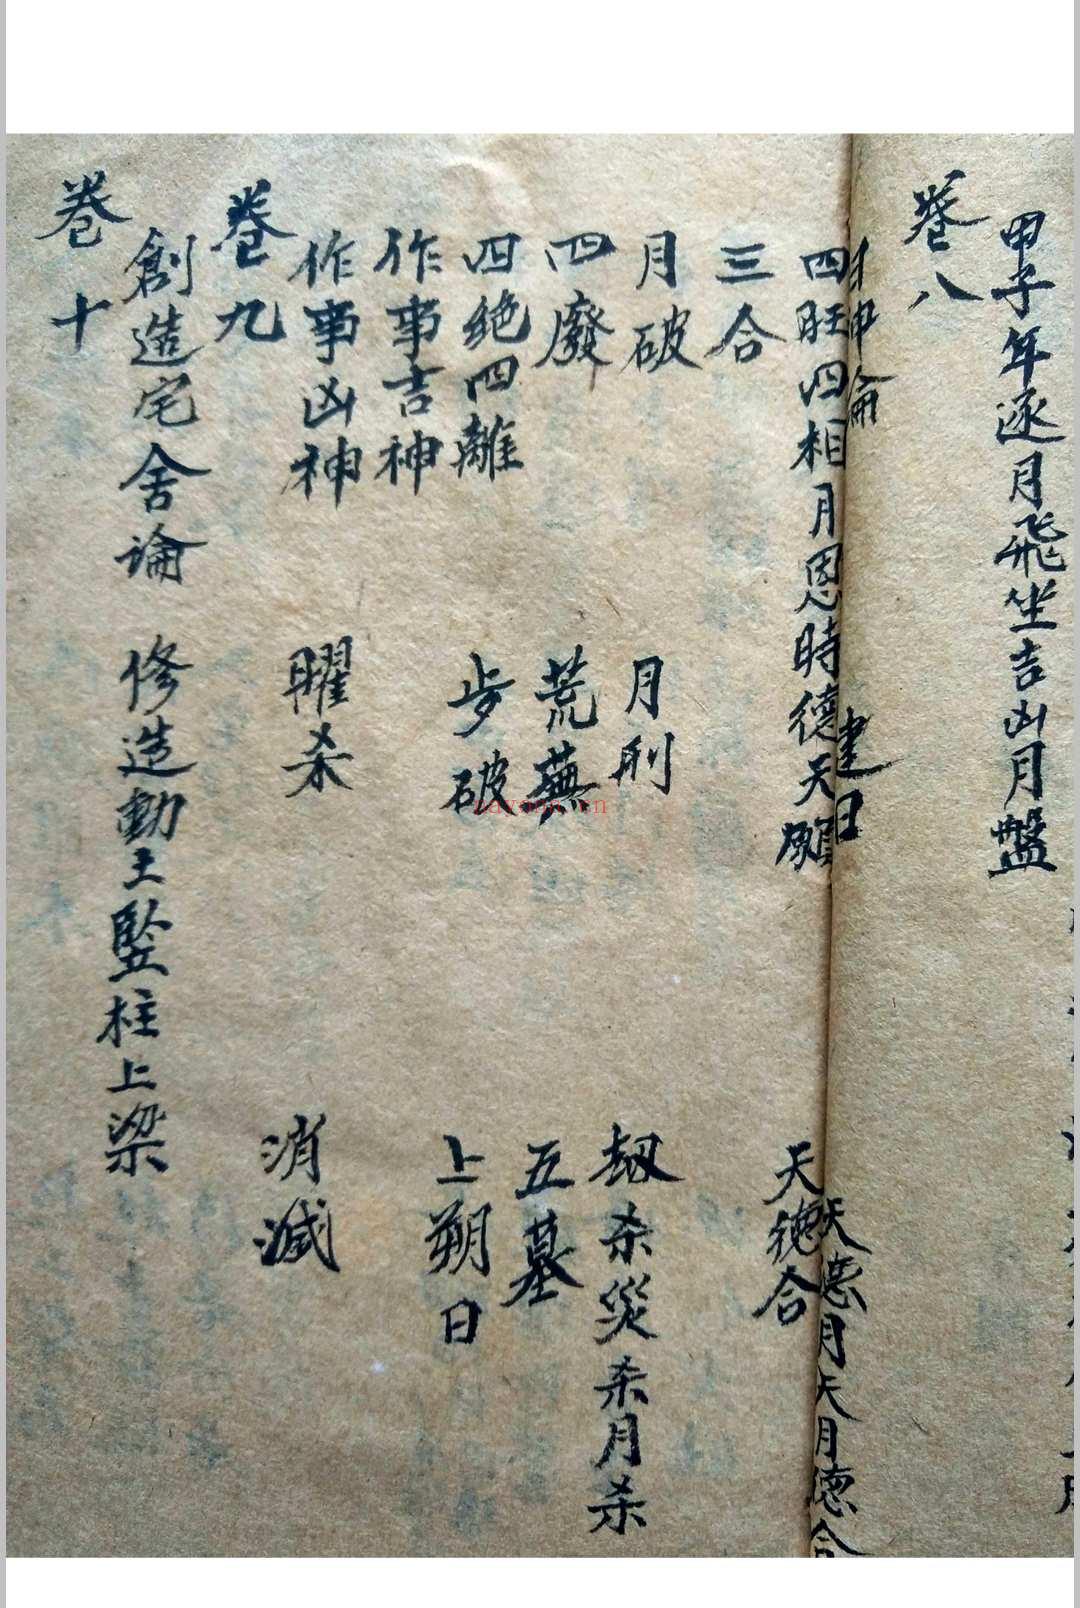 甲子年逐月飛坐吉凶月盤
卷八
日神論 建日 天德月天月德合
四旺四相月恩時德天願 天德合
三合
月破 月刑 刼杀災杀月杀
四廢 荒蕪 五墓
四絶四離 步破 上朔日
作事吉神
作事凶神 曜杀 消滅
卷九
創造宅舍論 修造動土豎柱上梁
卷十